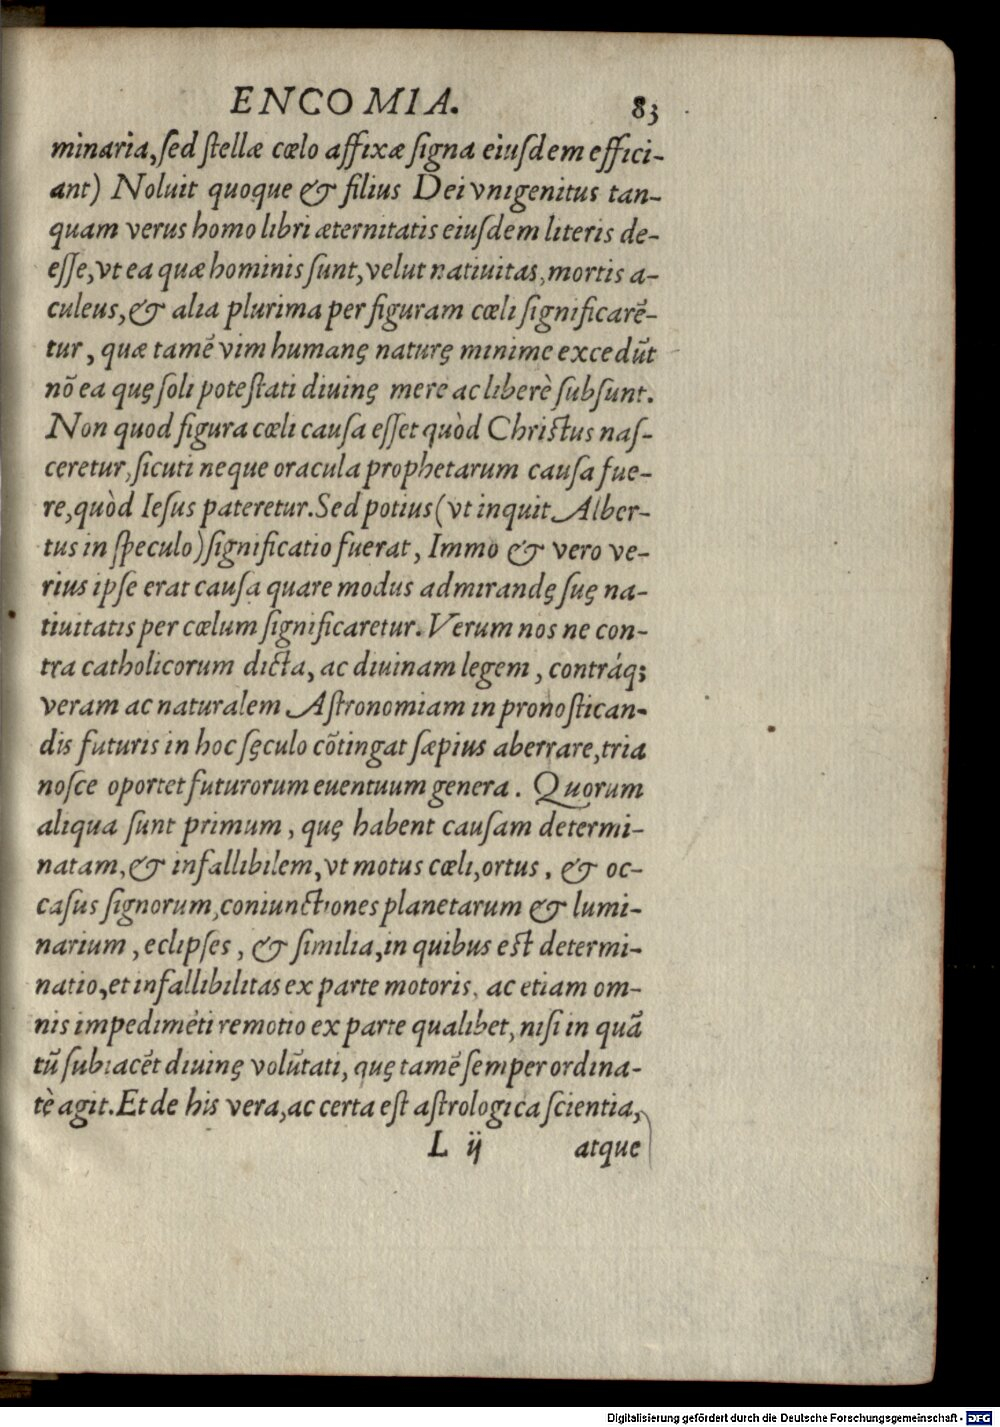 ENCOMIA. 83
minaria, sed stellæ cœlo affixæ signa eiusdem effici-
ant) Noluit quoque & filius Dei vnigenitus tan-
quam verus homo libri æternitatis eiusdem literis de-
esse, vt ea quæ hominis sunt, velut natiuitas, mortis a-
culeus, & alia plurima per figuram cœli significarē-
tur, quæ tamē vim humanę naturę minime excedūt
nō ea quę soli potestati diuinę mere ac liberè subsunt.
Non quod figura cœli causa esset quòd Christus nas-
ceretur, sicuti neque oracula prophetarum causa fue-
re, quòd Iesus pateretur. Sed potius (vt inquit Alber-
tus in speculo) significatio fuerat, Immo & vero ve-
rius ipse erat causa quare modus admirandę suę na-
tiuitatis per cœlum significaretur. Verum nos ne con-
tra catholicorum dicta, ac diuinam legem, contráq;
veram ac naturalem Astronomiam in pronostican-
dis futuris in hoc sęculo cōtingat sæpius aberrare, tria
nosce oportet futurorum euentuum genera. Quorum
aliqua sunt primum, quę habent causam determi-
natam, & infallibilem, vt motus cœli, ortus, & oc-
casus signorum, coniunctiones planetarum & lumi-
narium, eclipses, & similia, in quibus est determi-
natio, et infallibilitas ex parte motoris, ac etiam om-
nis impedimēti remotio ex parte qualibet, nisi in quā
tū subiacēt diuinę volūtati, quę tamē semper ordina-
tè agit. Et de his vera, ac certa est astrologica scientia,
L ij atque
Digitalisierung gefördert durch die Deutsche Forschungsgemeinschaft - DFG